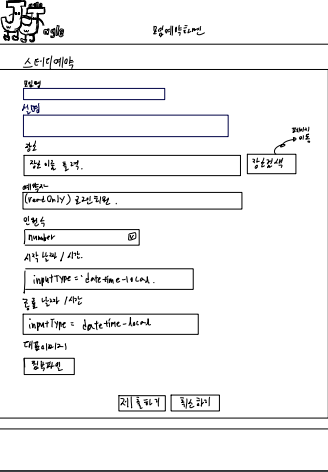 모임예약화면
스터디예약
모임명
설명
장소
장소 이름 출력.
장소검색
페이지
이동
예약자
(readOnly) 로그인회원.
인원수
number
시작 날짜 / 시간.
inputType = datetime-local.
종료 날짜 / 시간
inputType = datetime-local
대표이미지
첨부파일
제출하기
취소하기